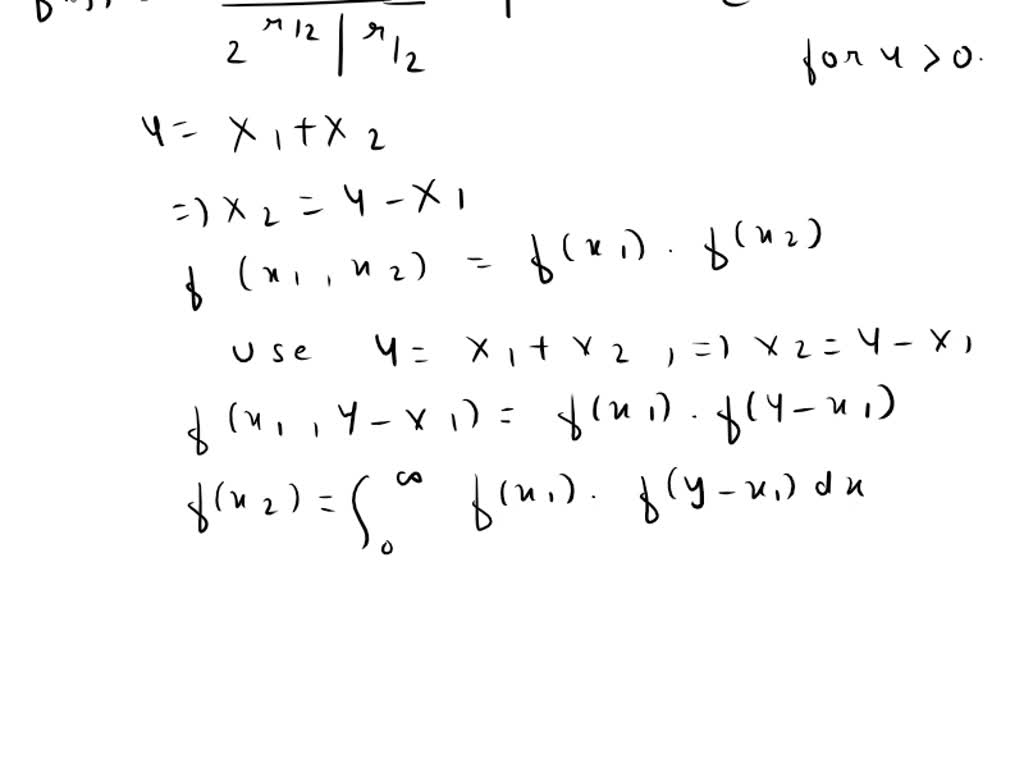 2^{r/2} Γr/2
for y > 0.
y = X1 + X2
=) X2 = y - X1
f (x1, x2) = f(x1) . f(x2)
use y = X1 + X2, =) X2 = y - X1
f(x1, y - X1) = f(x1) . f(y - x1)
f(x2) = ∫_0^∞ f(x1) . f(y - x1) dx